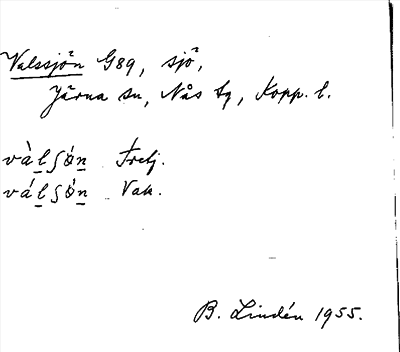 Valssjön G89, sjö,
Järna sn, Nås tg, Kopp. l.
vàlʃón Tretj.
válʃón Vak.
B. Lindén 1955.